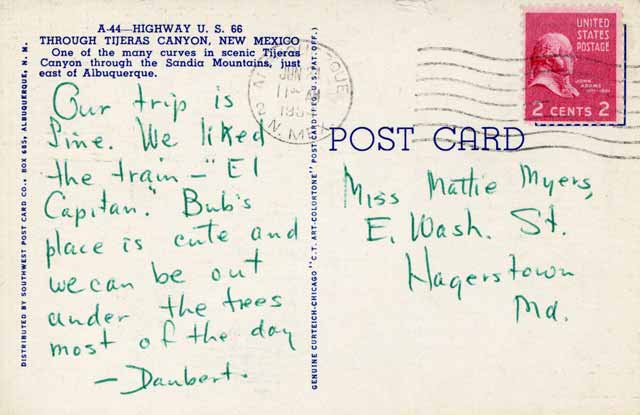 A-44—HIGHWAY U. S. 66
THROUGH TIJERAS CANYON, NEW MEXICO
One of the many curves in scenic Tijeras
Canyon through the Sandia Mountains, just
east of Albuquerque.
Our trip is
fine. We liked
the train – "El
Capitan." Bub's
place is cute and
we can be out
under the trees
most of the day
– Daubert.
DISTRIBUTED BY SOUTHWEST POST CARD CO., BOX 685, ALBUQUERQUE, N. M.
GENUINE CURTEICH-CHICAGO "C.T. ART-COLORTONE" POST CARD (REG. U.S. PAT. OFF.)
JUN
N. MEX.
UNITED
STATES
POSTAGE
JOHN
ADAMS
2 CENTS 2
POST CARD
Miss Mattie Myers,
E. Wash. St.
Hagerstown
Md.